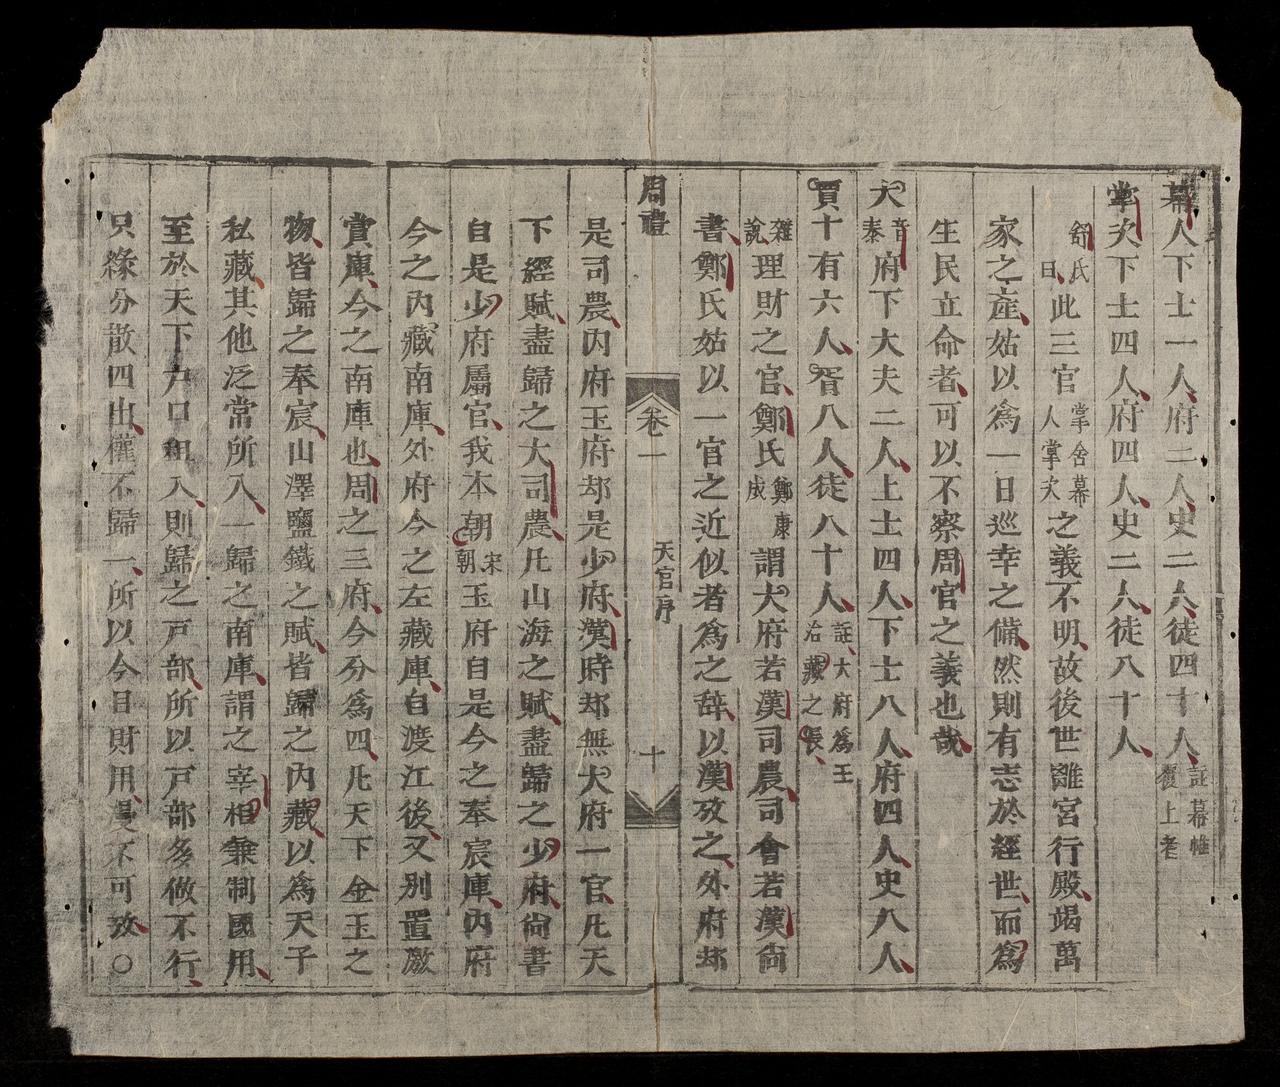 幕人下士一人府二人史二人徒四十人註幕帷覆上者
掌次下士四人府四人史二人徒八十人
舒氏曰此三官掌舍幕人掌次之義不明故後世離宮行殿竭萬
家之產姑以為一日巡幸之備然則有志於經世而為
生民立命者可以不察周官之義也哉
大音泰府下大夫二人上士四人下士八人府四人史八人
賈十有六人胥八人徒八十人註大府為王治藏之長
雜說理財之官鄭氏鄭康成謂大府若漢司農司會若漢尙
書鄭氏姑以一官之近似者為之辞以漢攷之外府却
周禮 卷一 天官序 十
是司農內府玉府却是少府漢時却無大府一官凡天
下經賦盡歸之大司農凡山海之賦盡歸之少府尙書
自是少府屬官我本朝宋朝玉府自是今之奉宸庫內府
今之內藏南庫外府今之左藏庫自渡江後又別置激
賞庫今之南庫也周之三府今分為四凡天下金玉之
物皆歸之奉宸山澤鹽鐵之賦皆歸之內藏以為天子
私藏其他泛常所入一歸之南庫謂之宰相兼制國用
至於天下戶口租入則歸之戸部所以戸部多做不行
只緣分散四出權不歸一所以今日財用蔓不可攷〇